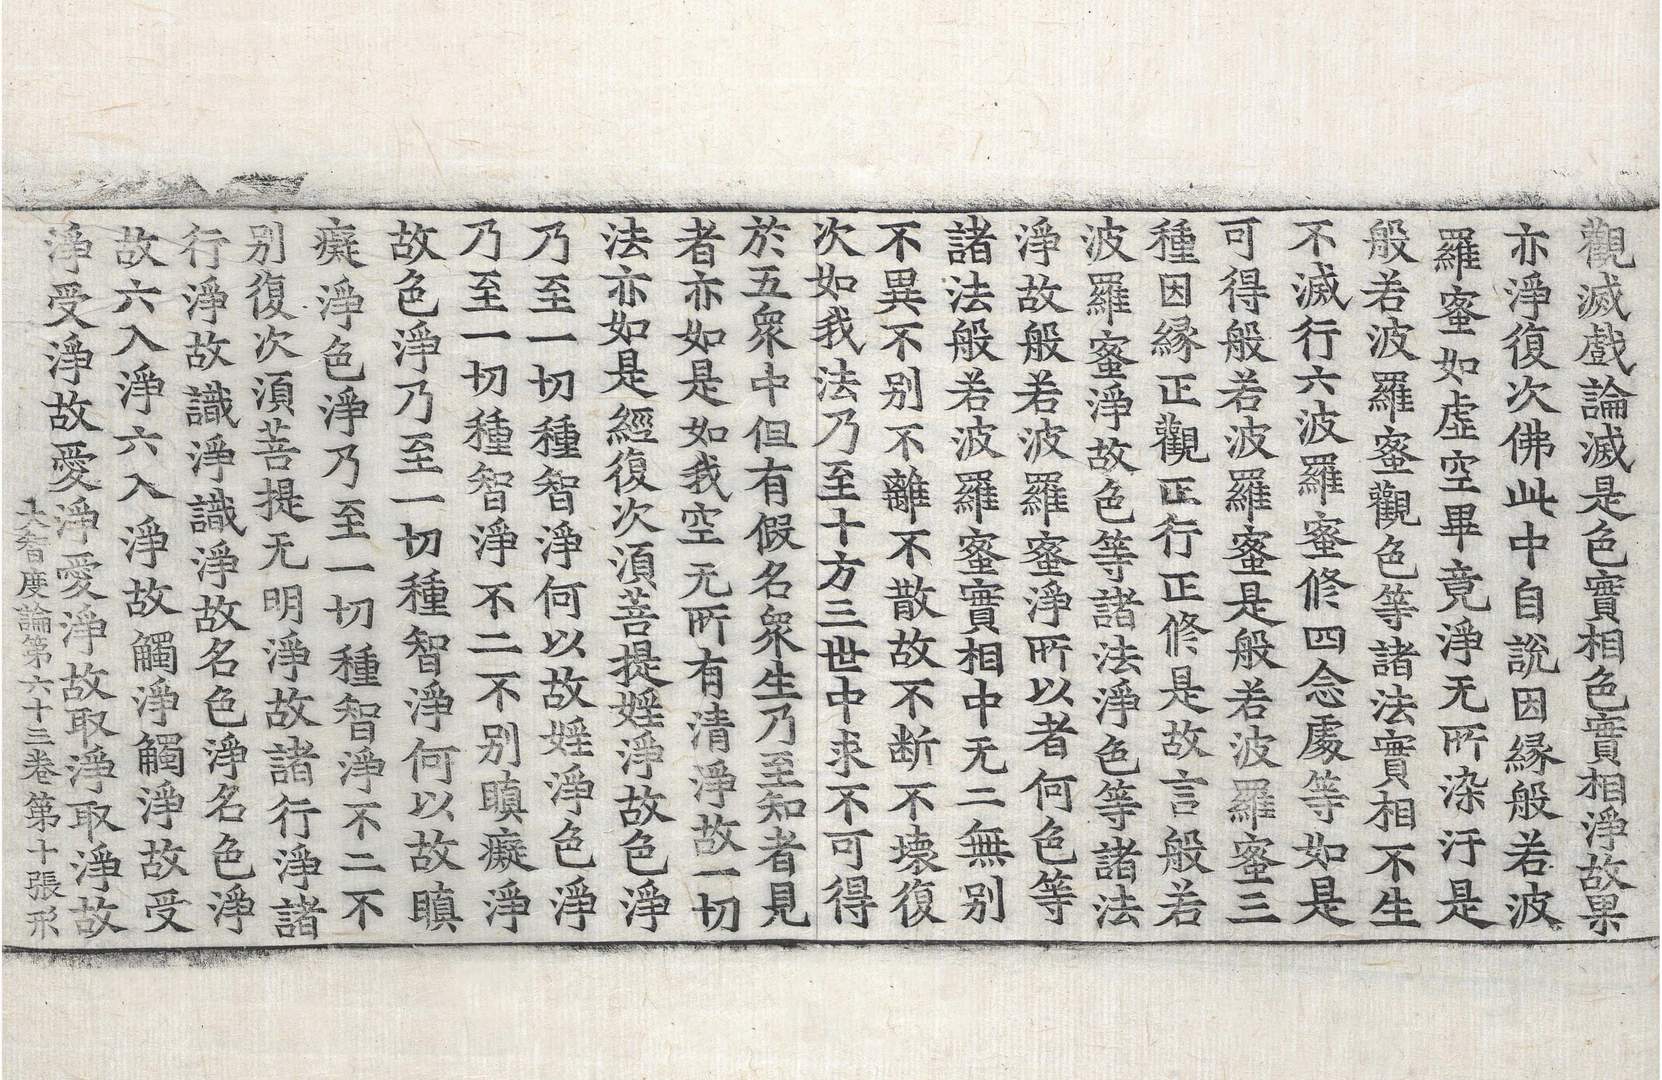 觀滅戲論滅是色實相色實相淨故果
亦淨復次佛此中自說因緣般若波
羅蜜如虛空畢竟淨无所染汙是
般若波羅蜜觀色等諸法實相不生
不滅行六波羅蜜修四念處等如是
可得般若波羅蜜是般若波羅蜜三
種因緣正觀正行正修是故言般若
波羅蜜淨故色等諸法淨色等諸法
淨故般若波羅蜜淨所以者何色等
諸法般若波羅蜜實相中无二無別
不異不別不離不散故不断不壞復
次如我法乃至十方三世中求不可得
於五衆中但有假名衆生乃至知者見
者亦如是如我空无所有清淨故一切
法亦如是經復次須菩提婬淨故色淨
乃至一切種智淨何以故婬淨色淨
乃至一切種智淨不二不別瞋癡淨
故色淨乃至一切種智淨何以故瞋
癡淨色淨乃至一切種智淨不二不
別復次須菩提无明淨故諸行淨諸
行淨故識淨識淨故名色淨名色淨
故六入淨六入淨故觸淨觸淨故受
淨受淨故愛淨愛淨故取淨取淨故
大智度論第六十三卷第十張形